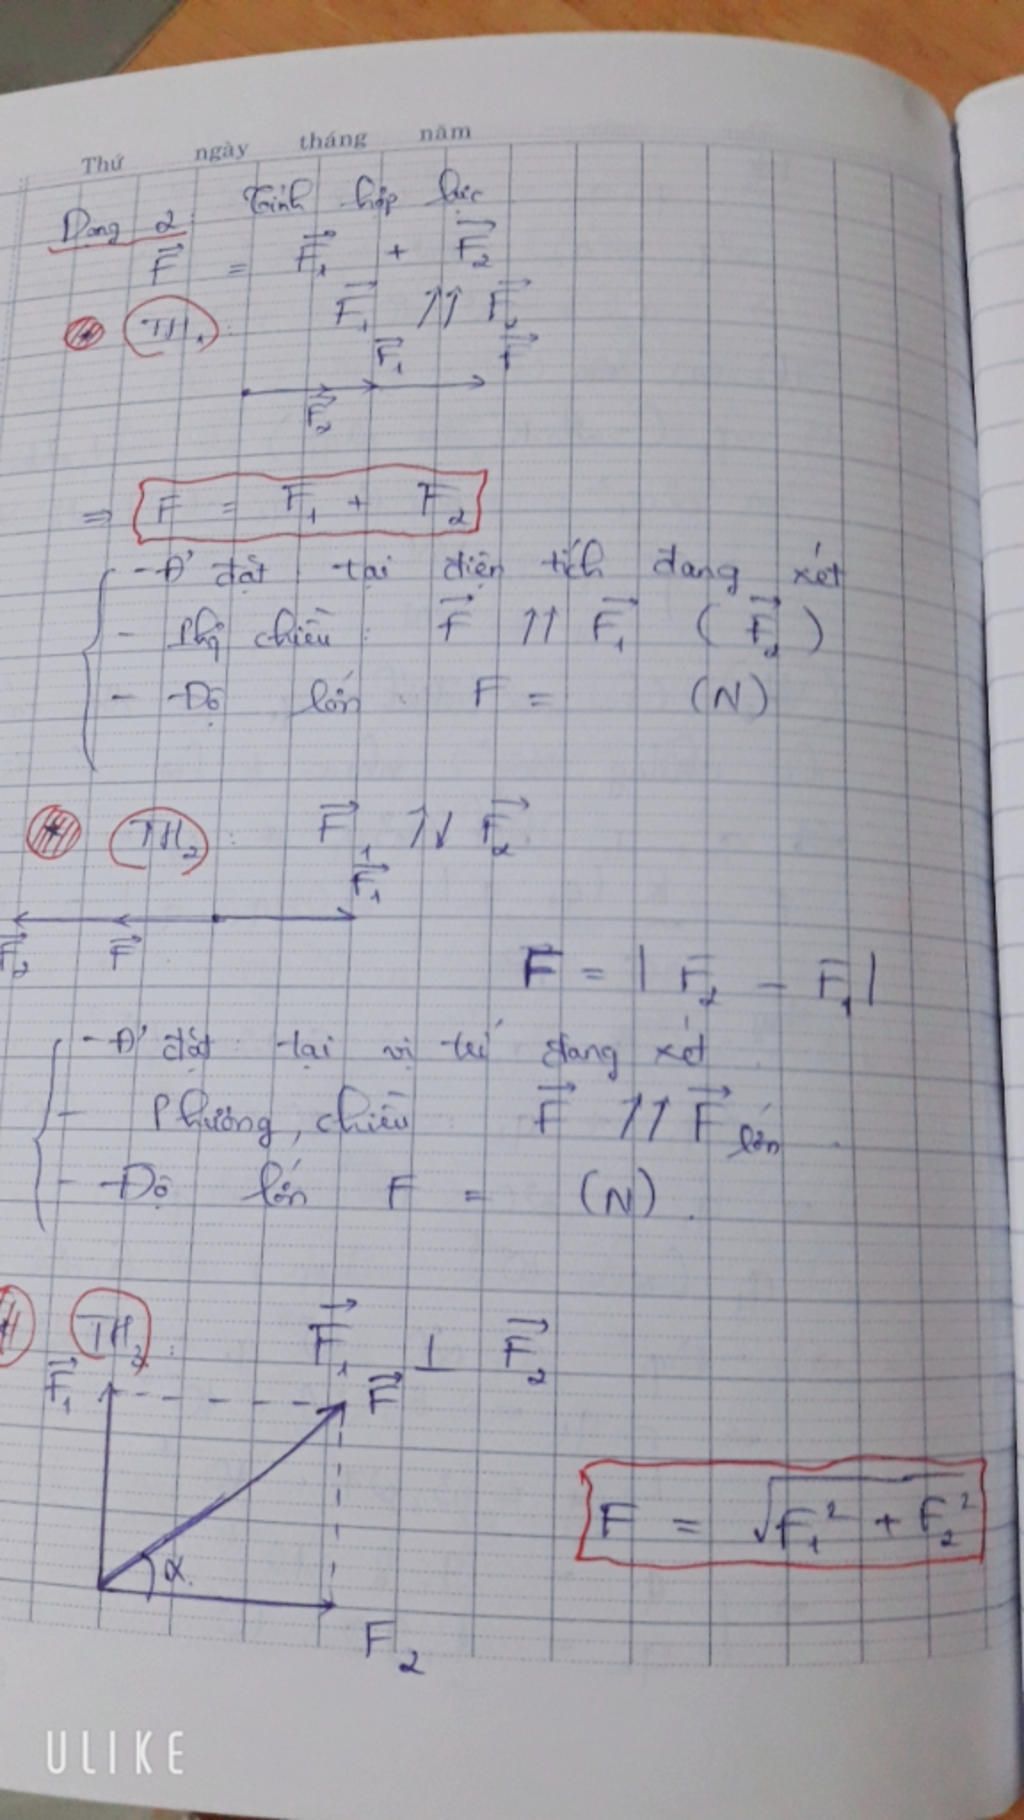 Thứ ngày tháng năm
Dạng 2: Tính hợp lực
F⃗ = F⃗₁ + F⃗₂
* TH₁: F⃗₁ ↑↑ F⃗₂
F⃗₁ F⃗
F⃗₂
⇒ F = F₁ + F₂
- Đ' đặt tại điện tích đang xét
- Phg chiều: F⃗ ↑↑ F⃗₁ (F⃗₂)
- Độ lớn F = (N)
* TH₂: F⃗₁ ↑↓ F⃗₂
F⃗₁
F⃗₂ F⃗
F = | F₂ - F₁ |
- Đ' đặt: tại vị trí đang xét
- Phương, chiều F⃗ ↑↑ F⃗ lớn
- Độ lớn F = (N).
TH₃: F⃗₁ ⊥ F⃗₂
F⃗₁ F⃗
F = √F₁² + F₂²
α
F₂
ULIKE